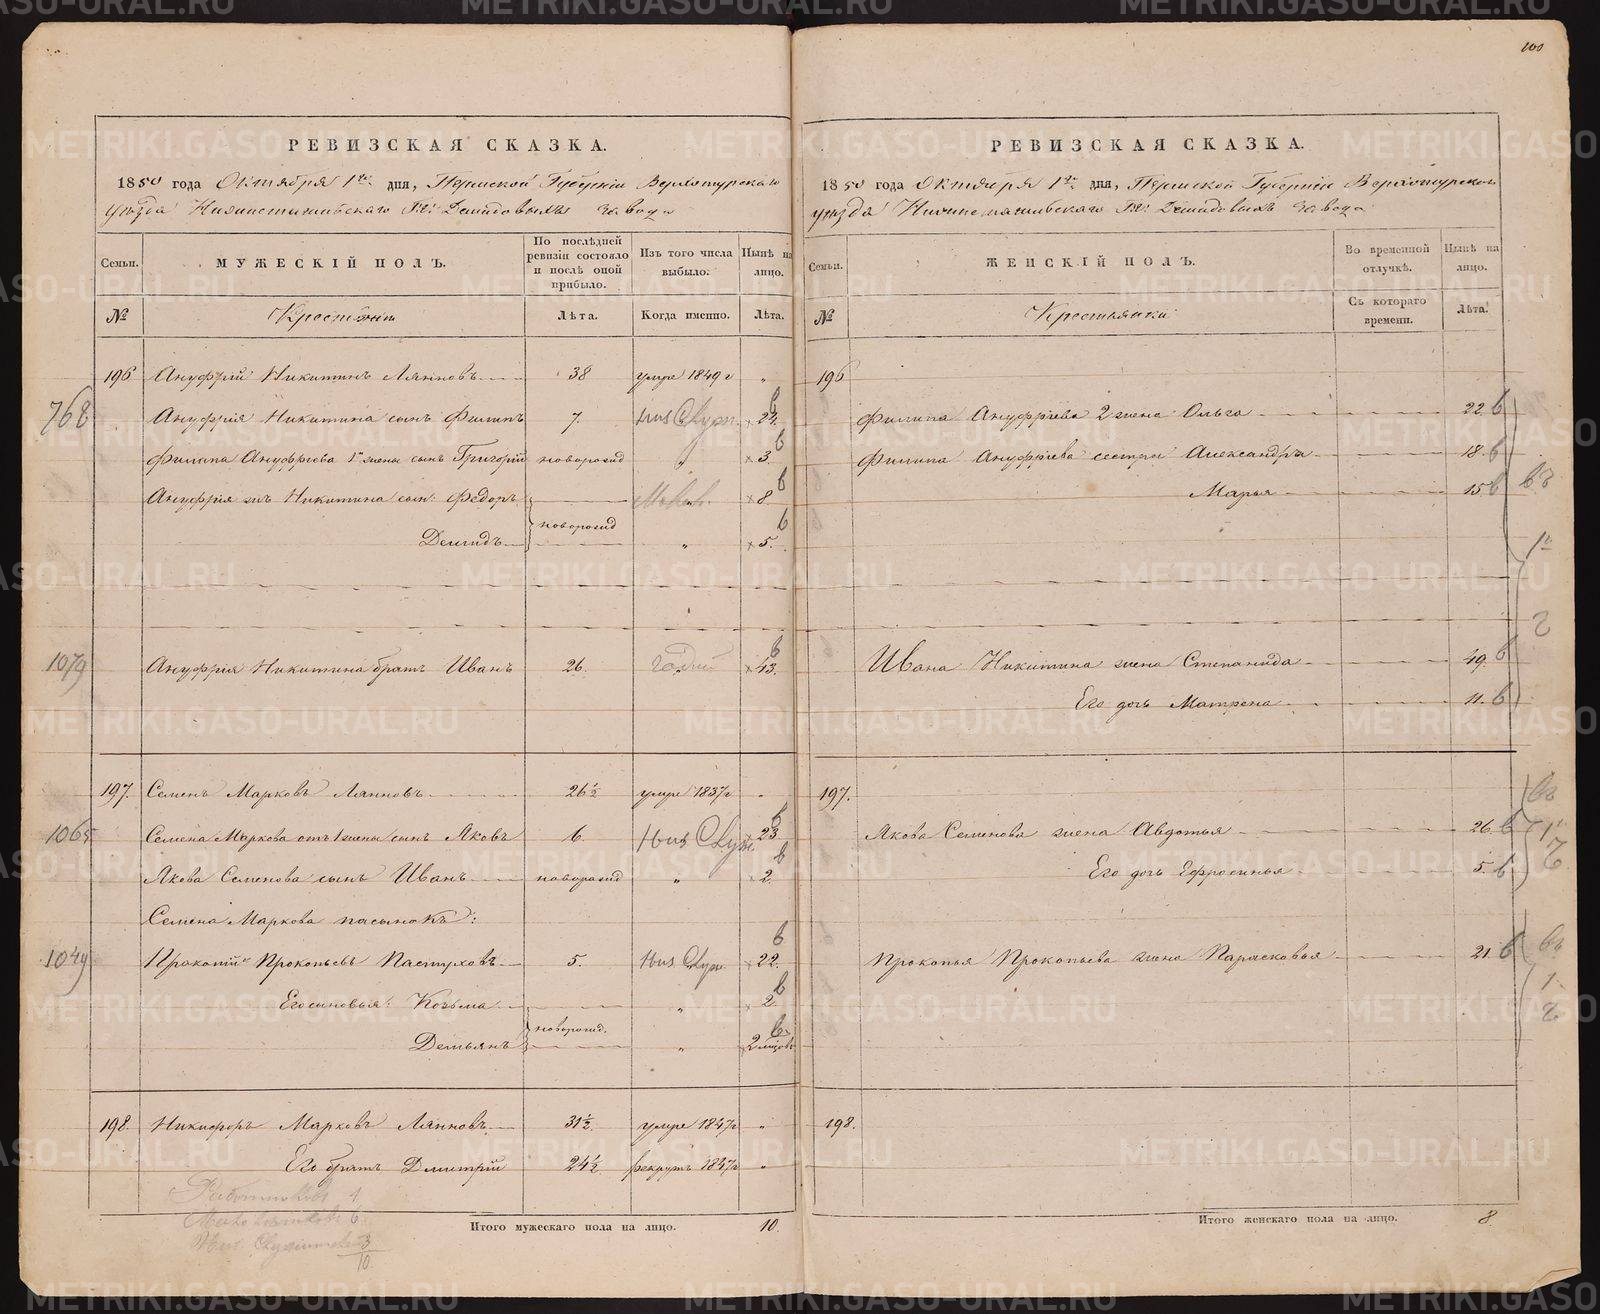 100
РЕВИЗСКАЯ СКАЗКА.
1850 года Октября 1го дня, Пермской Губерніи Верхотурскаго
уѣзда Нижнетагильскаго Гг. Демидовыхъ завода
Семьи.
МУЖЕСКІЙ ПОЛЪ.
По послѣдней ревизіи состояло и послѣ оной прибыло.
Изъ того числа выбыло.
Нынѣ на лицо.
№
Крестьяни
Лѣта.
Когда именно.
Лѣта.
196 Ануфрій Никитинъ Ляпновъ 38 умре 1849 г "
768 Ануфрія Никитина сынъ Филипъ 7. 24.
Филипа Ануфріева 1й жены сынъ Григорій новорожд " 3.
Ануфрія жъ Никитина сын: Федоръ 8
новорожд
Демидъ " 5.
1079 Ануфрія Никитина братъ Иванъ 26. 43.
197. Семенъ Марковъ Ляпновъ 26½ умре 1837 г "
1065 Семена Маркова отъ 1 жены сынъ Яковъ 6. 23.
Якова Семенова сынъ Иванъ новорожд " 2.
Семена Маркова пасынокъ:
1049 Прокопій Прокопьевъ Пастуховъ 5. 22.
Его сыновья: Козьма " 2.
новорожд.
Демьянъ " 2 мѣсов
198. Никифоръ Марковъ Ляпновъ 31½ умре 1847 г "
Его братъ Дмитрій 24½ рекрутъ 1837 г "
Работниковъ 1
6
3
10
Итого мужескаго пола на лицо. 10.
РЕВИЗСКАЯ СКАЗКА.
1850 года Октября 1го дня, Пермской Губерніи Верхотурскаго
уѣзда Нижнетагильскаго Гг. Демидовыхъ завода
Семьи.
ЖЕНСКІЙ ПОЛЪ.
Во временной отлучкѣ.
Нынѣ на лицо.
№
Крестьянки
Съ котораго времени.
Лѣта.
196
Филипа Ануфріева 2 жена Ольга 22.
Филипа Ануфріева сестры Александра 18.
Марья 15
Ивана Никитина жена Степанида 49.
Его дочь Матрена 11.
197.
Якова Семенова жена Авдотья 26.
Его дочь Ефросинья 5.
Прокопья Прокопьева жена Парасковья 21.
198.
Итого женскаго пола на лицо. 8.
METRIKI.GASO-URAL.RU